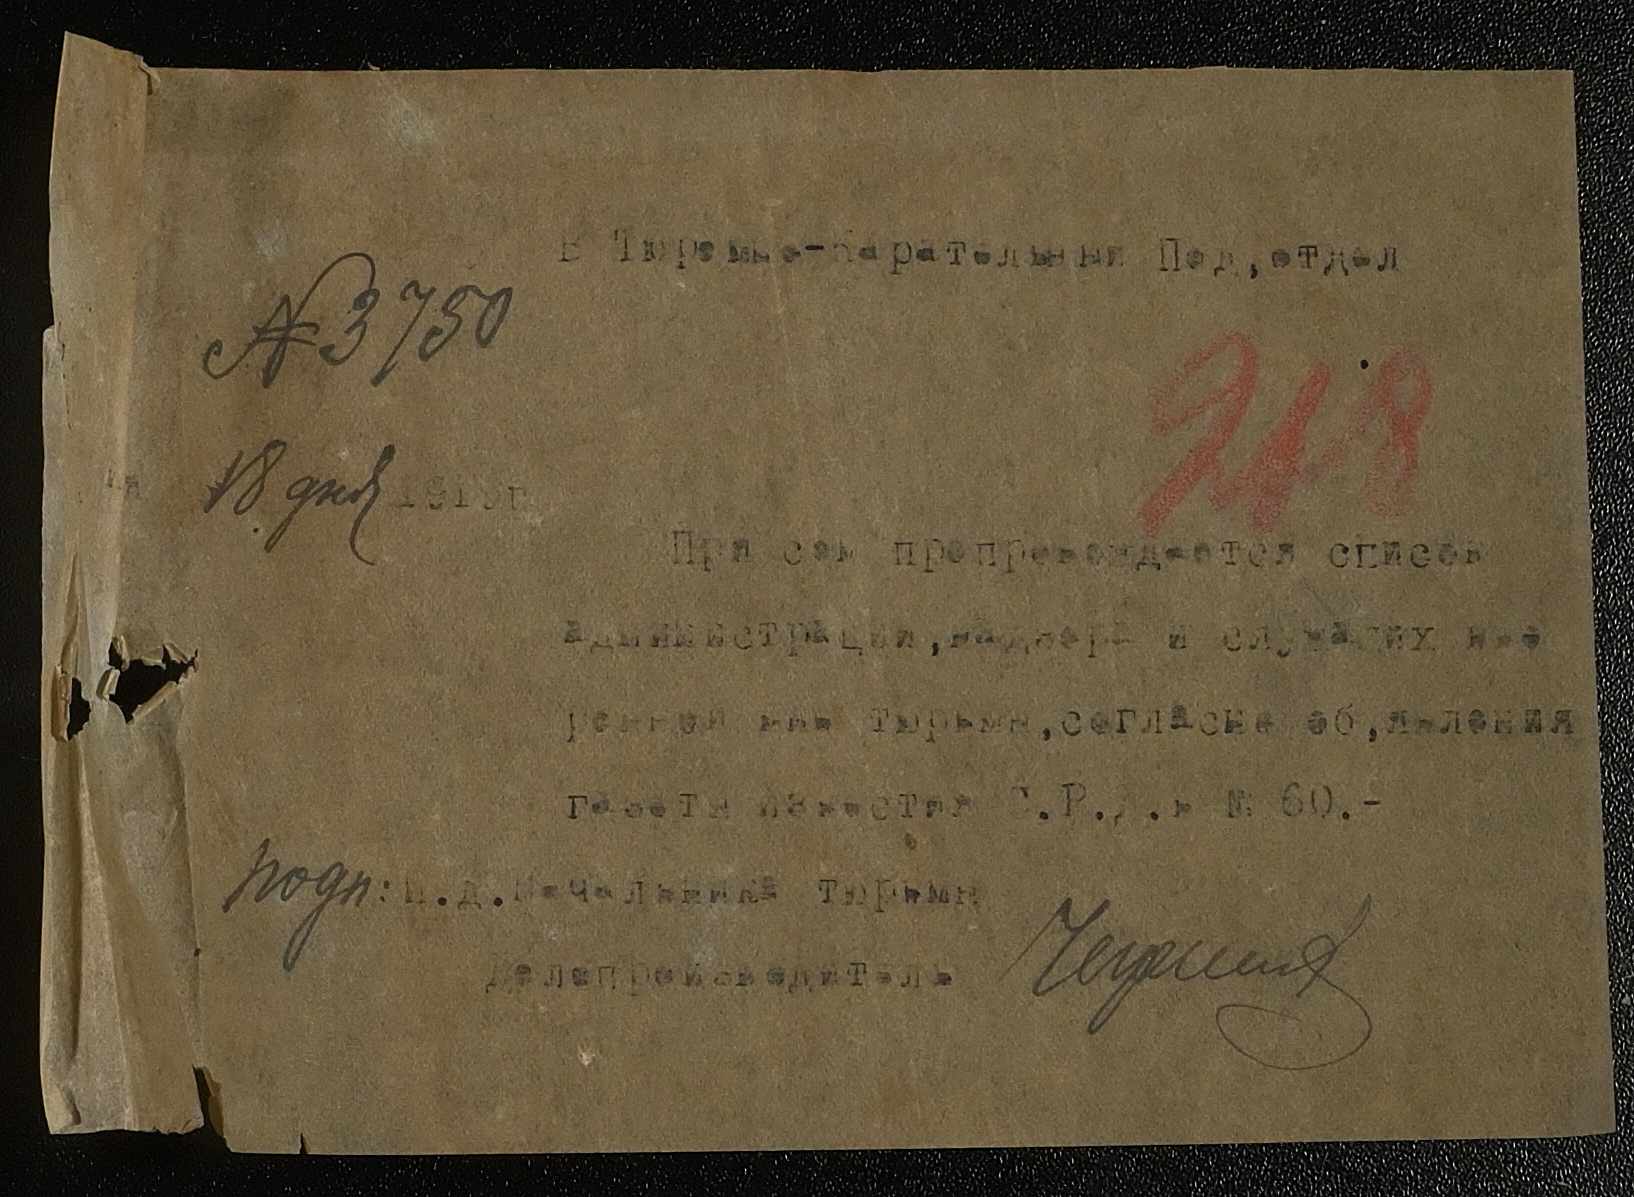 В Тюремно-Карательный Под,отдел
№ 3750
218
18 дня 1919г
При сем препровождается список
администрации, надзора и служащих вве
ренной мне тюрьмы, согласно об,явления
газеты Известия С.Р.Д. № 60.-
подп: И.д. Начальника тюрьмы
Делопроизводитель